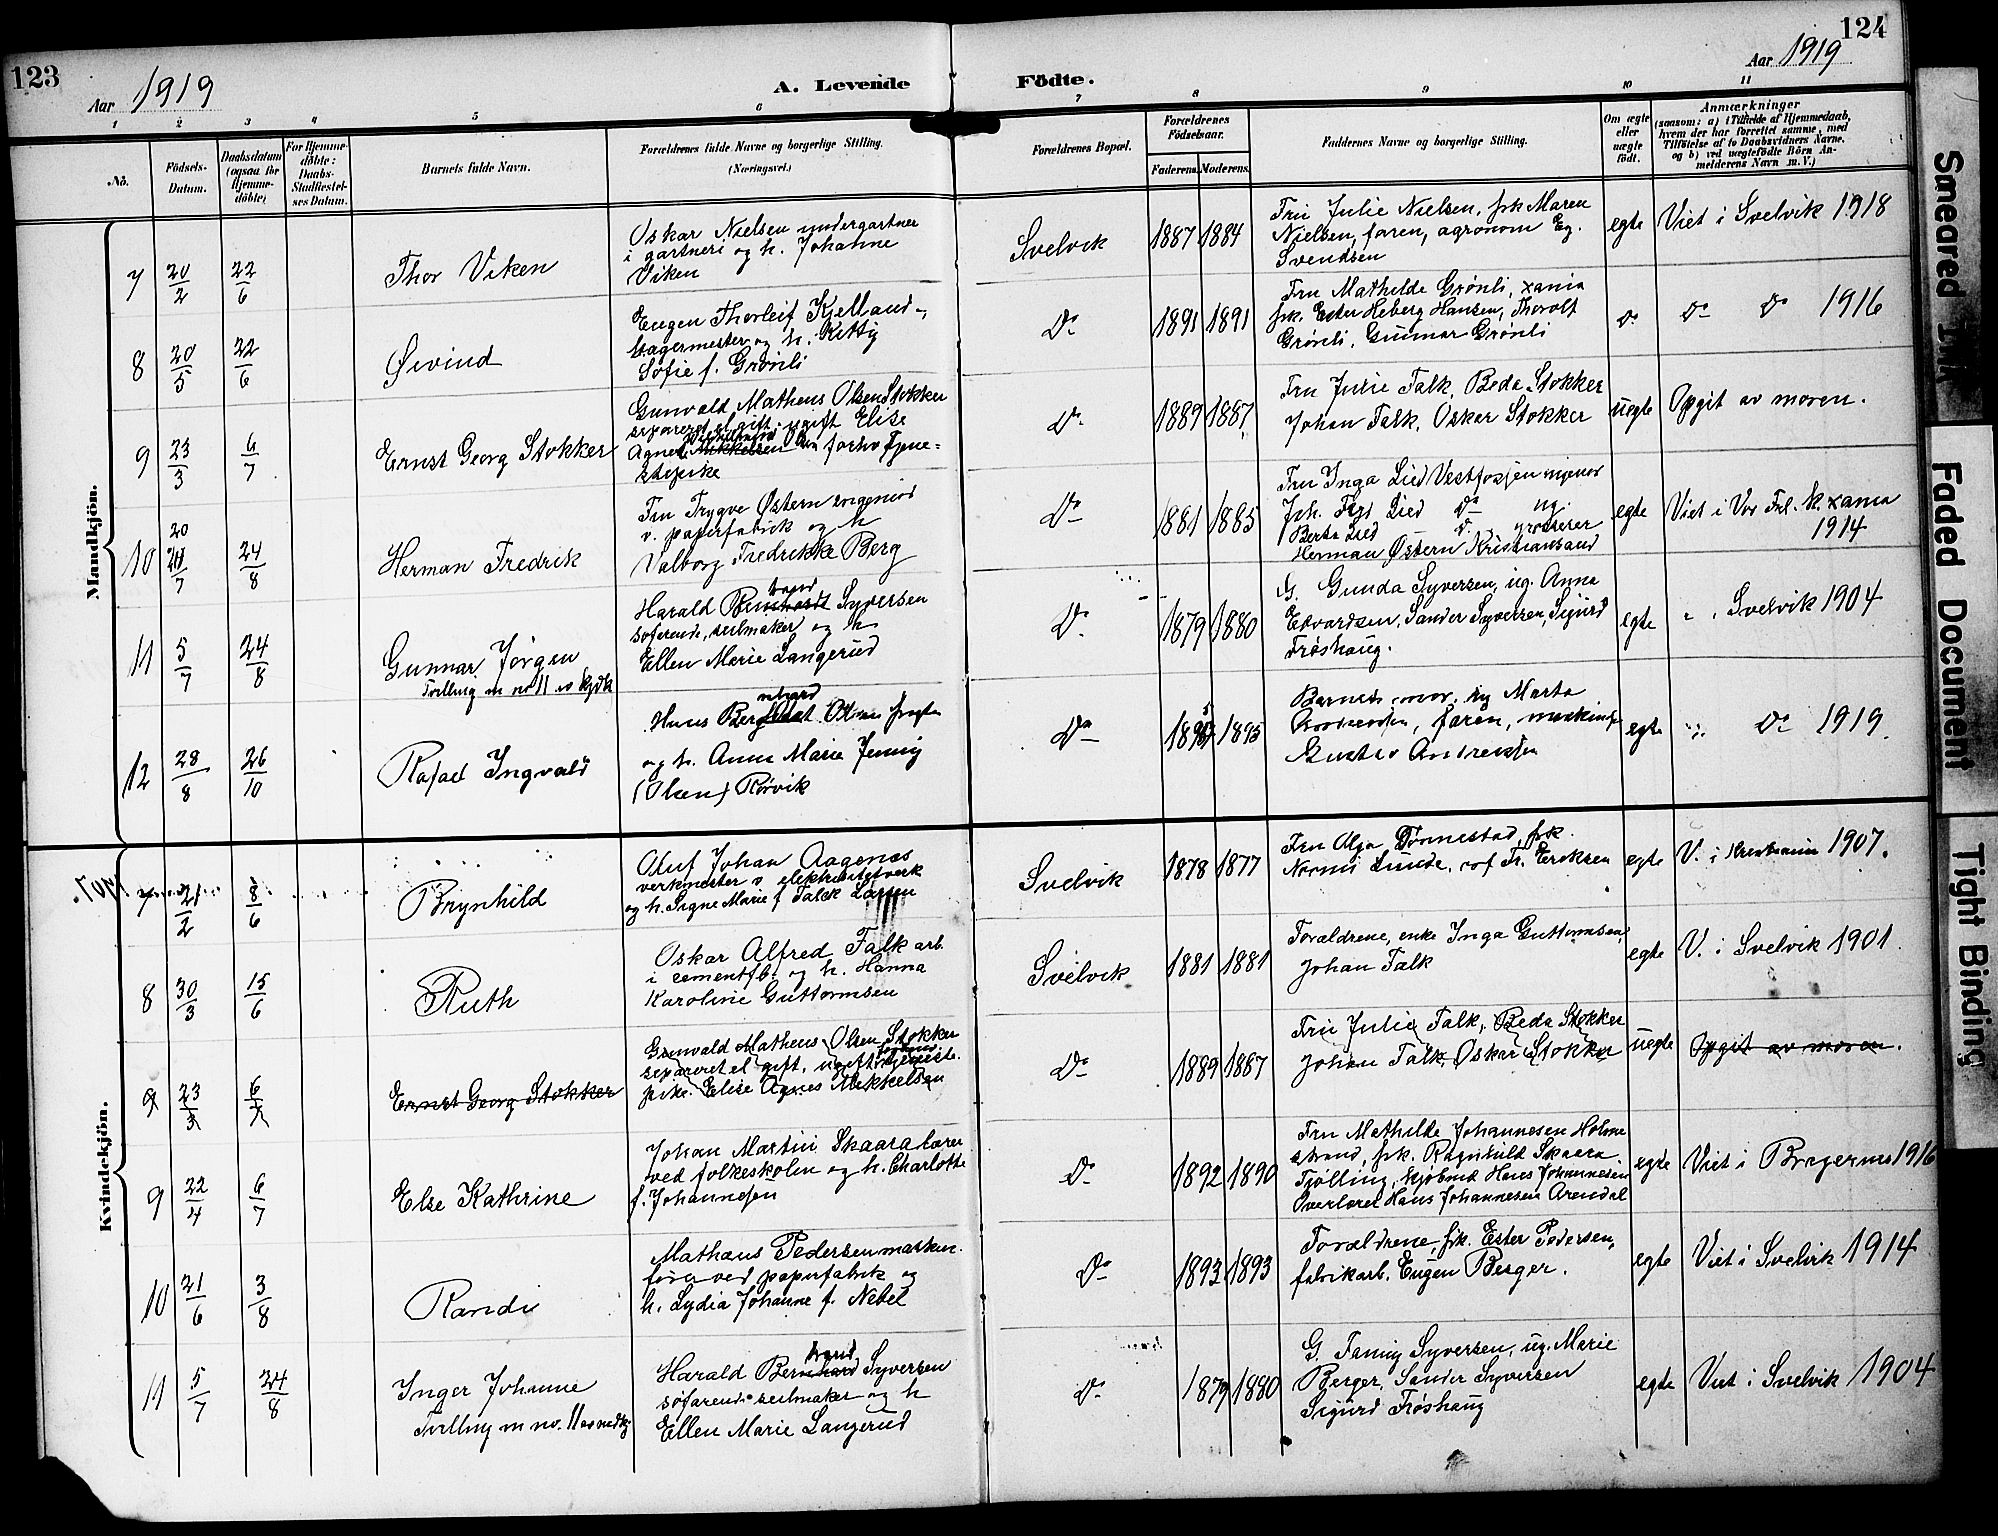 123
Aar 1919
A. Levende Födte.
Aar 1919
124
1 2 3 4 5 6 7 8 9 10 11
No.
Födsels-Datum.
Daabsdatum (ogsaa for Hjemme-döbte).
For Hjemme-döbte: Daabs-Stadfæstel-ses Datum.
Barnets fulde Navn.
Forældrenes fulde Navne og borgerlige Stilling.
(Næringsvei.)
Forældrenes Bopæl.
Forældrenes Födselsaar.
Faderens. Moderens.
Faddernes Navne og borgerlige Stilling.
Om ægte eller uægte födt.
Anmærkninger
(saasom: a) i Tilfælde af Hjemmedaab,
hvem der har forrettet samme, med
Tilföielse af to Daabsvidners Navne,
og b) ved uægtefödte Börn An-
melderens Navn m. V.)
Mandkjön.
7 20/2 22/6 Thor Viken
Oskar Nielsen undergartner
i gartneri og h. Johanne
Viken
Svelvik 1887 1884
Fru Julie Nielsen, frk Maren
Nielsen, faren, agronom Eg.
Svendsen
egte Viet i Svelvik 1918
8 20/5 22/6 Øivind
Eugen Thorleif Kjelland-,
lagermester og h. Kitty
Sofie f. Grønli
Do 1891 1891
Fru Mathilde Grønli, xania
frk. Ester Heberg Hansen, Thorolf
Grønli, Gunnar Grønli
Do Do Do 1916
9 23/3 6/7 Ernst Georg Stokker
Gunvald Matheus Olsen Stokker
separeret el gift, ugift Elise
Agnes Mikkelsen forhv tjene-
stepike
Do 1889 1887
Fru Julie Falk, Beda Stokker
Johan Falk, Oskar Stokker
uegte Opgit av moren.
10 20/7 24/8 Herman Fredrik
Fru Trygve Østern ingeniør
v. papirfabrik og h
Valborg Fredrikke Berg
Do 1881 1885
Fru Inga Lied Vestfossen ingeniør
Joh. Lied Do ug.
Berta Lied Do grosserer
Herman Østern Kristiansand
egte Viet i Vor Frl. k. xania
1914
11 5/7 24/8 Gunnar Jørgen
Tvilling m no 11 av kvdk
Harald Bernhard Syversen
søfarende, seilmaker og h
Ellen Marie Langerud
Do 1879 1880
G. Gunda Syversen, ug. Anna
Edvardsen, Sander Syversen, Sigurd
Frøshaug.
egte " . Svelvik 1904
12 28/8 26/10 Rafael Ingvald
Hans Berg Olsen
og h. Anna Marie Jenny
(Olsen) Rørvik
Do 1895 1895
Barnets mor, ug Marta
Andresen, faren, maskinist
Gustav Andresen
egte " Do 1919.
Kvindekjön.
7 21/2 8/6 Brynhild
Oluf Johan Aagenæs
verkmester v. elektricitetsverk
og h. Signe Marie f Falck Larsen
Svelvik 1878 1877
Fru Olga Tønnestad, frk.
Lunde, Fr. Eriksen
egte V. i Kristiania 1907.
8 30/3 15/6 Ruth
Oskar Alfred Falk arb.
i cementfb. og h. Hanna
Karoline Guttormsen
Svelvik 1881 1881
Forældrene, enke Inga Guttormsen,
Johan Falk
egte V. i Svelvik 1901.
9 23/3 6/7 Ernst Georg Stokker
Gunvald Matheus Olsen Stokker
separeret el gift, ugift forhenv. tjeneste-
pike Elise Agnes Mikkelsen
Do 1889 1887
Fru Julie Falk, Beda Stokker
Johan Falk, Oskar Stokker
uegte Opgit av moren.
9 22/4 6/7 Else Kathrine
Johan Martin Skaara lærer
ved folkeskolen og h. Charlotte
f. Johannesen
Do 1892 1890
Fru Mathilde Johannesen Holme
strand, frk. Ragnhild Skaara
Tjølling, kjøbmd Hans Johannesen
Overlærer Hans Johannesen Arendal
egte Viet i Bragernes 1916
10 21/6 3/8 Randi
Mathæus Pedersen maskin.
fører ved papirfabrik og
h. Lydia Johanne f. Nebel
Do 1893 1893
Forældrene, frk. Ester Pedersen,
fabrikarb. Eugen Berger.
egte Viet i Svelvik 1914
11 5/7 24/8 Inger Johanne
Tvilling m no. 11 av mdkj
Harald Bernhard Syversen
søfarende seilmaker og h
Ellen Marie Langerud
Do 1879 1880
G. Fanny Syversen, ug. Marie
Berger, Sander Syversen
Sigurd Frøshaug
egte Viet i Svelvik 1904
Smeared Ink
Faded Document
Tight Binding